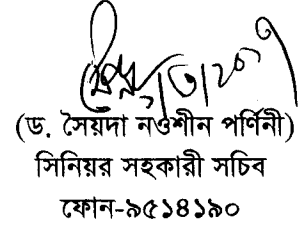 (ড. সৈয়দা নওশীন পর্ণিনী)
সিনিয়র সহকারী সচিব
ফোন-৯৫১৪১৯০